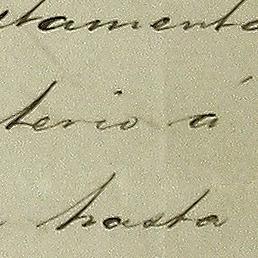 stamento
terio á
hasta